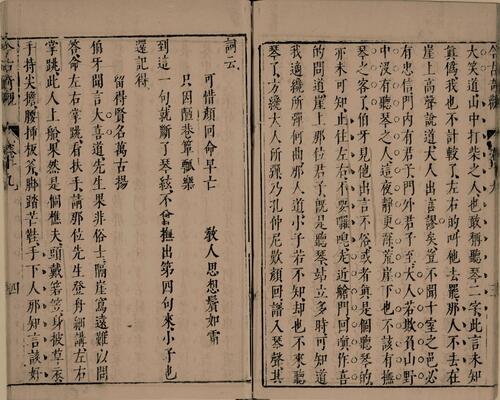 大笑道山中打柴之人也敢稱聽琴二字此言未知
真偽我也不計較了左右的叫他去罷那人不去在
崖上高聲說道大人出言謬矣豈不聞十室之邑必
有忠信門內有君子門外君子至大人若欺負山野
中沒有聽琴之人這夜靜更深荒崖下也不該有撫
琴之客了伯牙見他出言不俗或者眞是個聽琴的
亦未可知止住左右不要囉唣走近艙門回嗔作喜
的問道崖上那位君子既是聽琴站立多時可知道
我適纔所彈何曲那人道小子若不知却也不來聽
琴了方纔大人所彈乃孔仲尼歎顏回譜入琴聲其
詞云
可惜顏回命早亡 敎人思想鬢如霜
只因陋巷簞瓢樂
到這一句就斷了琴絃不曾撫出第四句來小子也
還記得
留得賢名萬古揚
伯牙聞言大喜道先生果非俗士隔崖窵遠難以問
答命左右掌跳看扶手請那位先生登舟細講左右
掌跳此人上船果然是個樵夫頭戴箬笠身披蓑衣
手持尖擔腰插板斧脚踏芒鞋手下人那知言談好
今古奇觀 卷十九 四